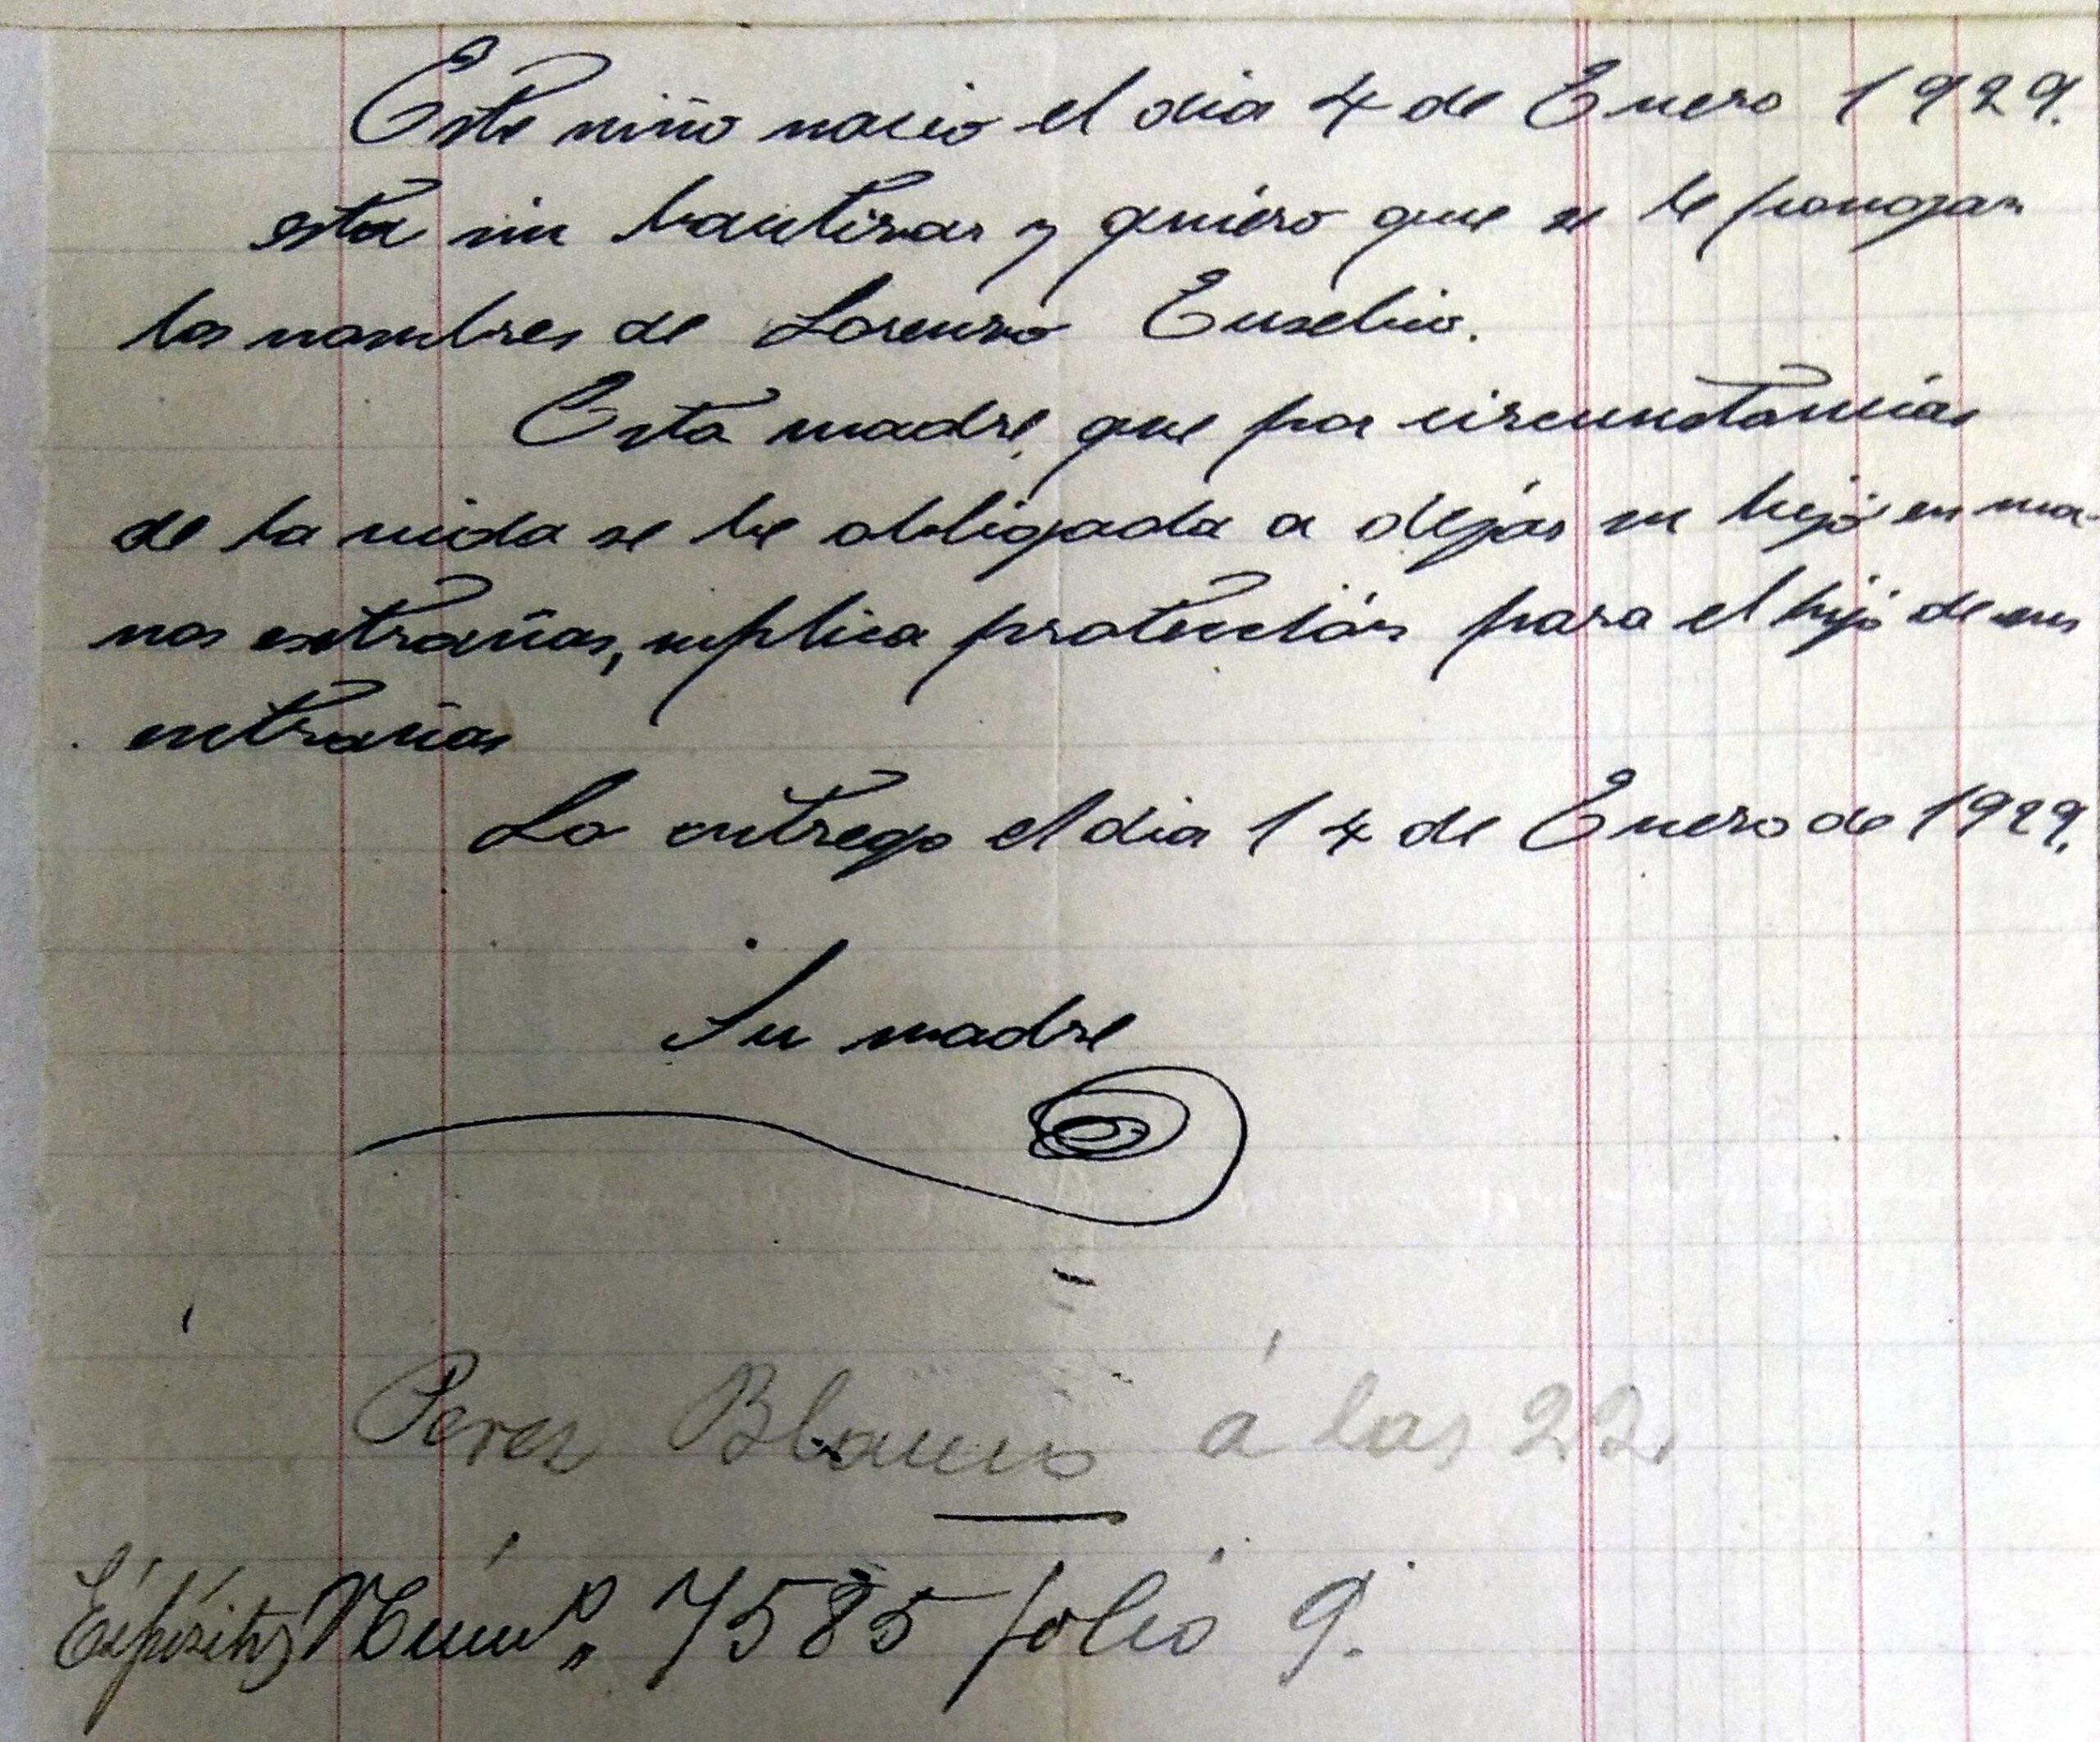 Este niño nacio el dia 4 de Enero 1929.
esta sin bautizar y quiero que se le pongan
los nombres de Lorenzo Eusebio.
Esta madre, que por circunstancias
de la vida se be obligada a dejar su hijo en ma-
nos extrañas, suplica protección para el hijo de sus
entrañas
Lo entrego el dia 14 de Enero de 1929.
Su madre
Perez Blanco á las 22.
Expósitos Núm.º 7585 folio 9.